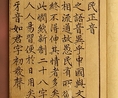 民正音
之語音異乎中國與文
相流通故愚民有所
終不得伸其情者多矣
此憫然新制二十八
人人易習便於日用矣
牙音如君字初發聲